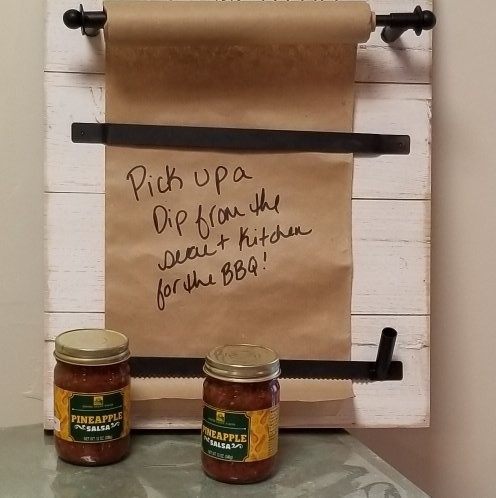 Pick up a
Dip from the
secret Kitchen
for the BBQ!
PINEAPPLE
SALSA
PINEAPPLE
SALSA